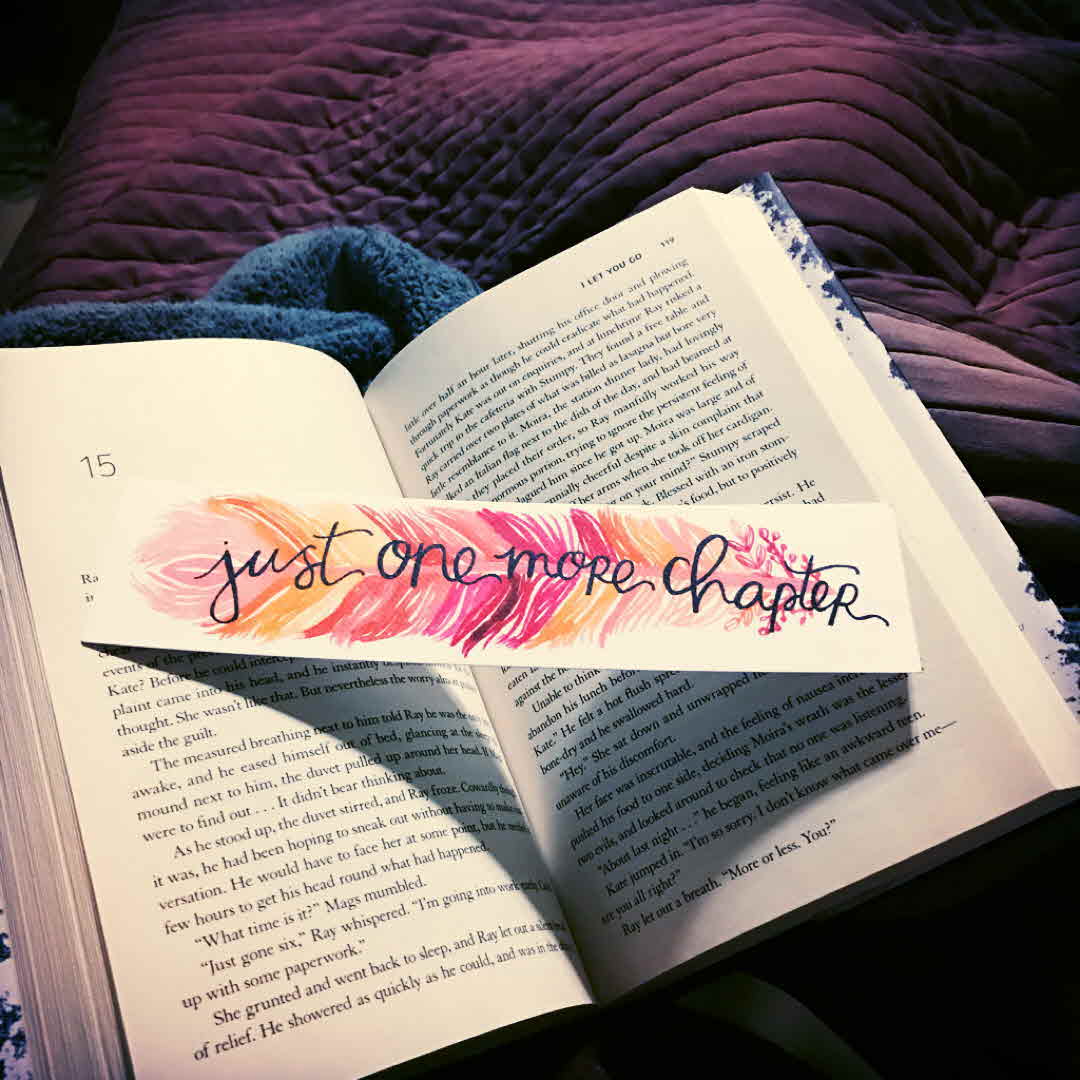 15
Ra
events of the
Kate? Before he could
plaint came into his head, and he instantly
thought. She wasn't like that. But nevertheless the worry
aside the guilt.
The measured breathing next to him told Ray he was the
awake, and he eased himself out of bed, glancing at the
mound next to him, the duvet pulled up around her head. If
were to find out . . . It didn't bear thinking about.
As he stood up, the duvet stirred, and Ray froze. Cowardly
it was, he had been hoping to sneak out without having to make
versation. He would have to face her at some point, but he
few hours to get his head round what had happened.
"What time is it?" Mags mumbled.
"Just gone six," Ray whispered. "I'm going into work
up with some paperwork."
She grunted and went back to sleep, and Ray let out a
of relief. He showered as quickly as he could, and was in the
just one more chapter
I LET YOU GO 119
little over half an hour later, shutting his office door and plowing
through paperwork as though he could eradicate what had happened.
Fortunately Kate was out on enquiries, and at lunchtime Ray risked a
quick trip to the cafeteria with Stumpy. They found a free table and
Ray carried over two plates of what was billed as lasagna but bore very
little resemblance to it. Moira, the station dinner lady, had lovingly
an Italian flag next to the dish of the day, and had beamed at
they placed their order, so Ray manfully worked his way
enormous portion, trying to ignore the persistent feeling of
plagued him since he got up. Moira was large and of
cheerful despite a skin complaint that
her arms when she took off her cardigan.
on your mind?" Stumpy scraped
Blessed with an iron stom-
food, but to positively
persist. He
had
eaten
against the
Unable to think
abandon his lunch before
Kate." He felt a hot flush
bone-dry and he swallowed hard.
"Hey." She sat down and unwrapped
unaware of his discomfort.
Her face was inscrutable, and the feeling of nausea
pushed his food to one side, deciding Moira's wrath was the lesser
two evils, and looked around to check that no one was listening.
"About last night . . ." he began, feeling like an awkward teen.
Kate jumped in. "I'm so sorry. I don't know what came over me—
are you all right?"
Ray let out a breath. "More or less. You?"